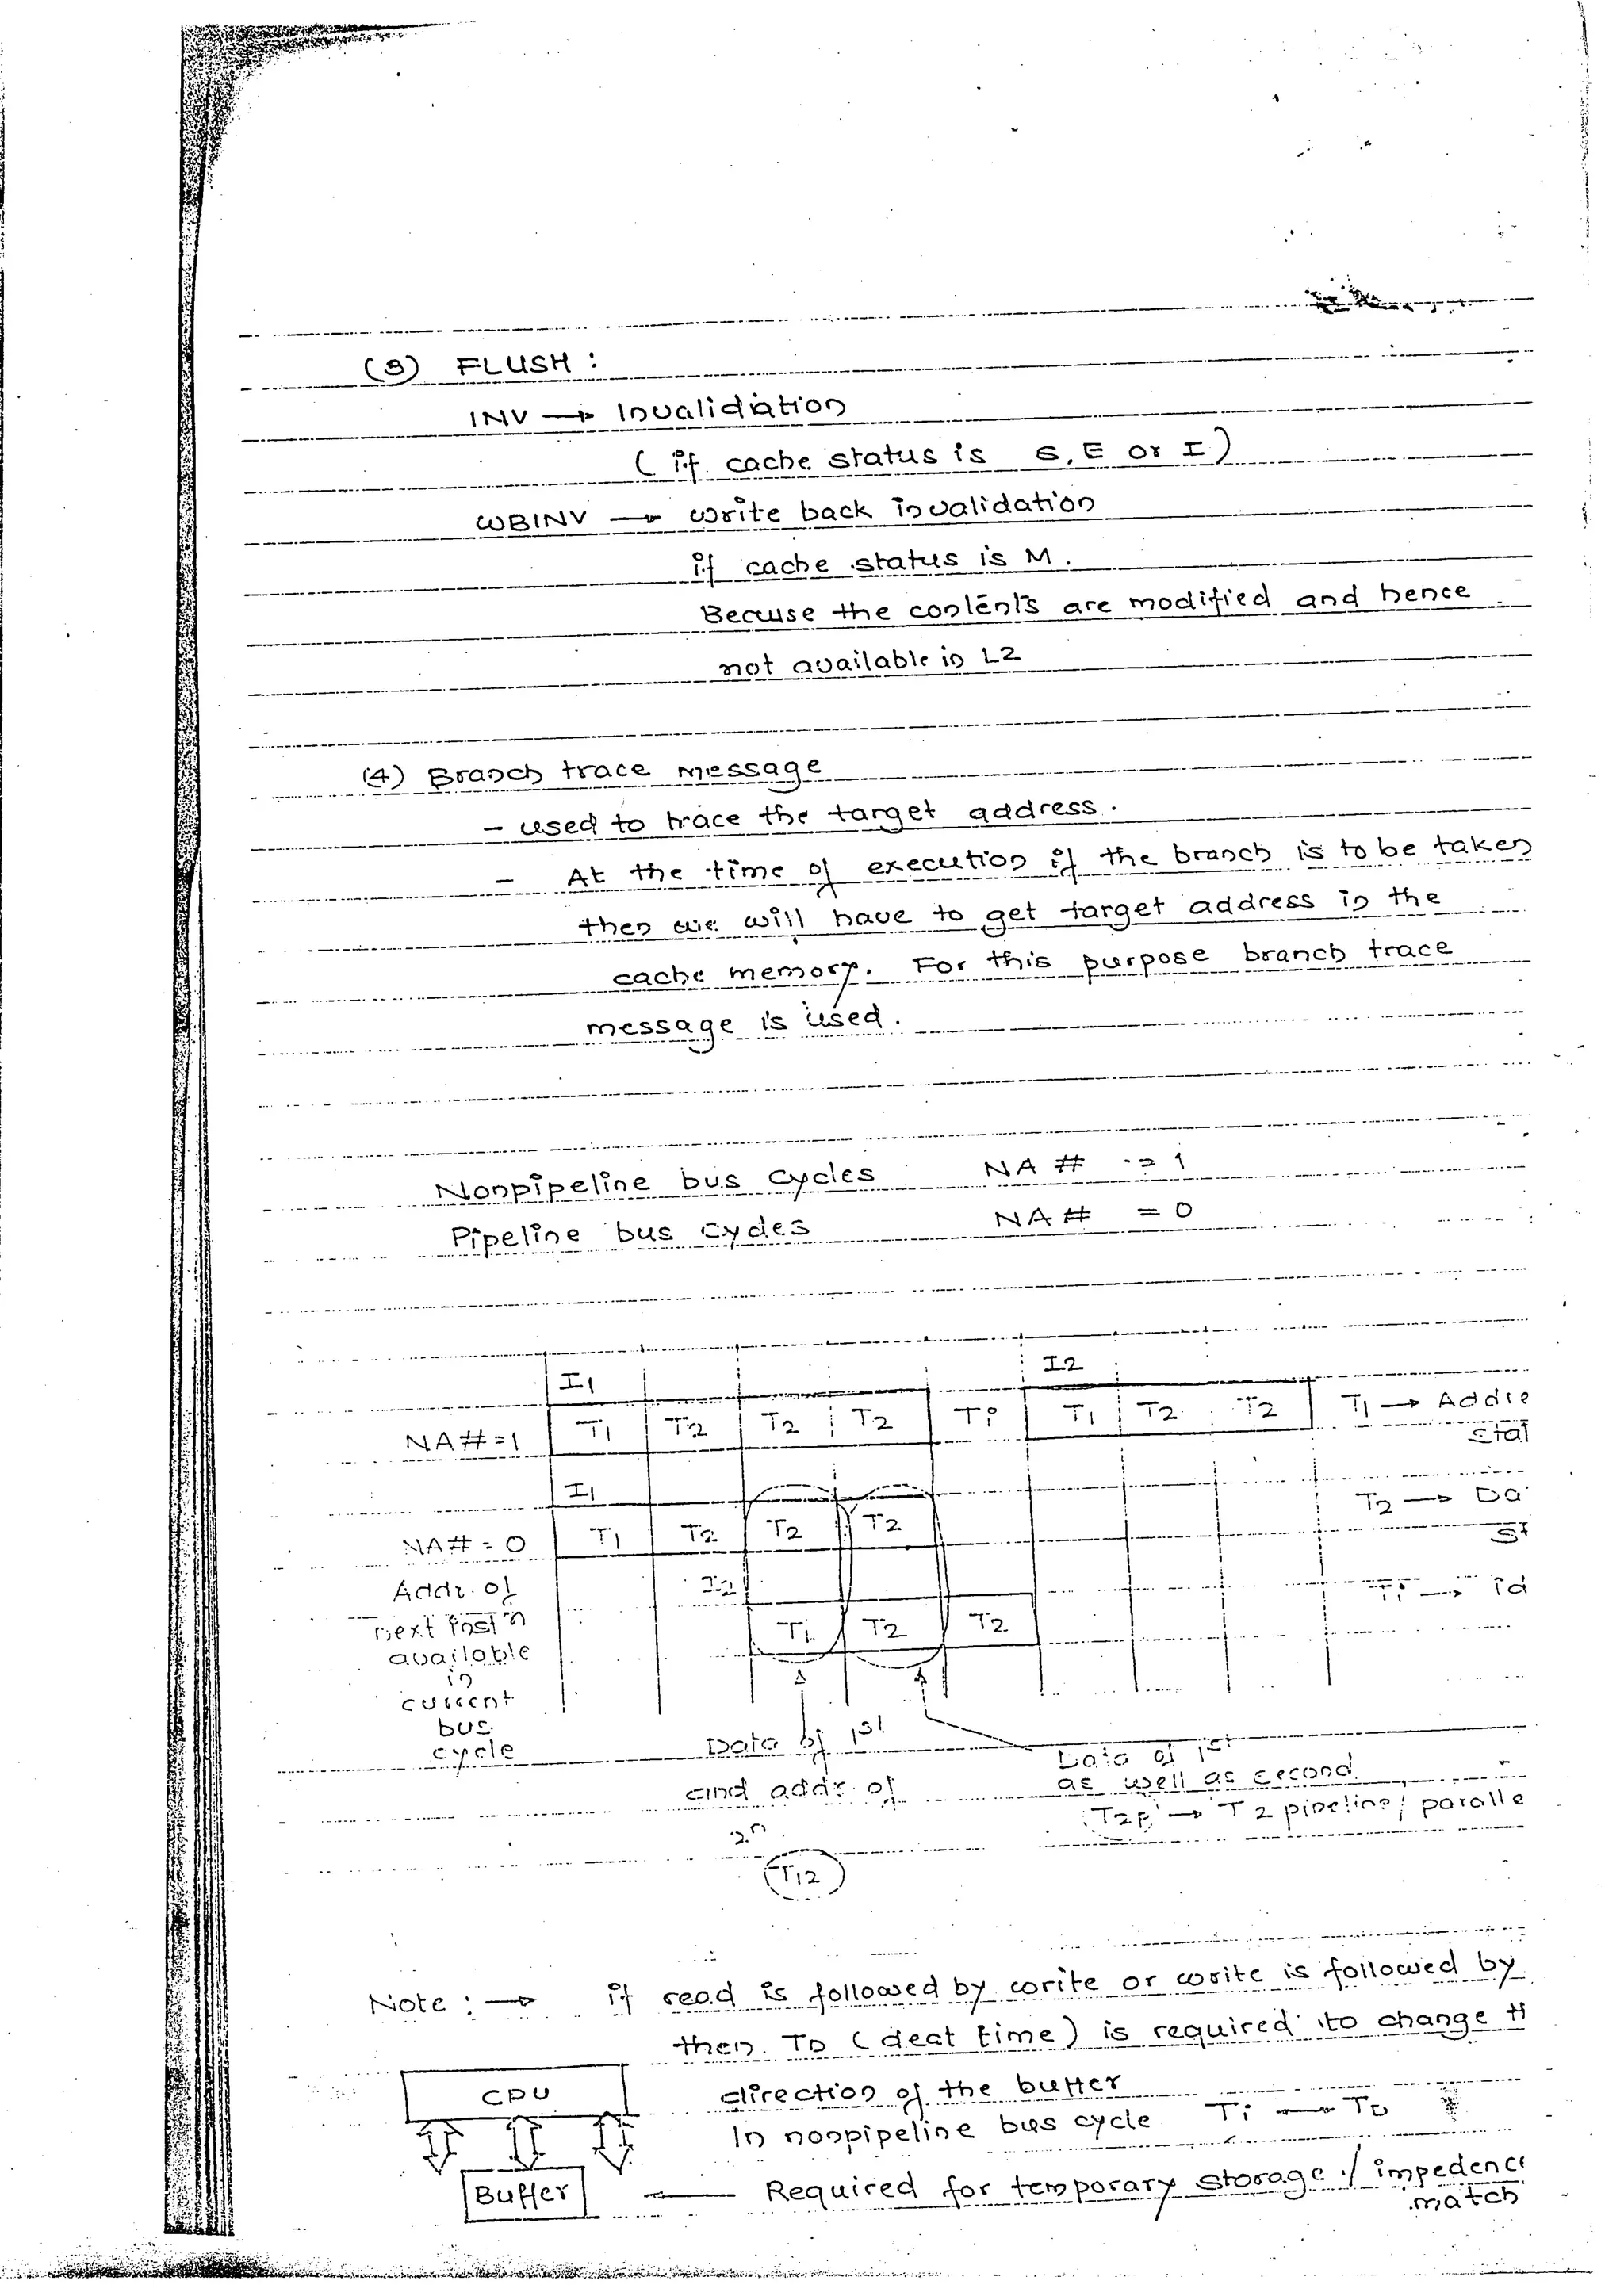 (3) FLUSH :
INV → Invalidiation
( if cache status is S, E or I )
WBINV → write back invalidation
if cache status is M.
Becuse the contents are modified and hence
not available in L2
(4) Branch trace message
- used to trace the target address.
- At the time of execution if the branch is to be taken
then we will have to get target address in the
cache memory. For this purpose branch trace
message is used.
Nonpipeline bus cycles NA # = 1
Pipeline bus cycles NA# = 0
I1 I2
NA#=1 T1 T2 T2 T2 Ti T1 T2 T2 T1 → Addre
stat
I1
T2 → Da
NA# = 0 T1 T2 T2 T2
st
Addr. of I2 Ti → id
next instn T1 T2 T2
available
in
current
bus
cycle
Data of 1st
and addr. of
2n
T12
Data of 1st
as well as second
T2P → T2 pipeline/ paralle
Note : → if read is followed by write or write is followed by
then TD ( deat time ) is required to change th
direction of the buffer
CPU
In nonpipeline bus cycle Ti → TD
Buffer ← Required for temporary storage / impedence
match